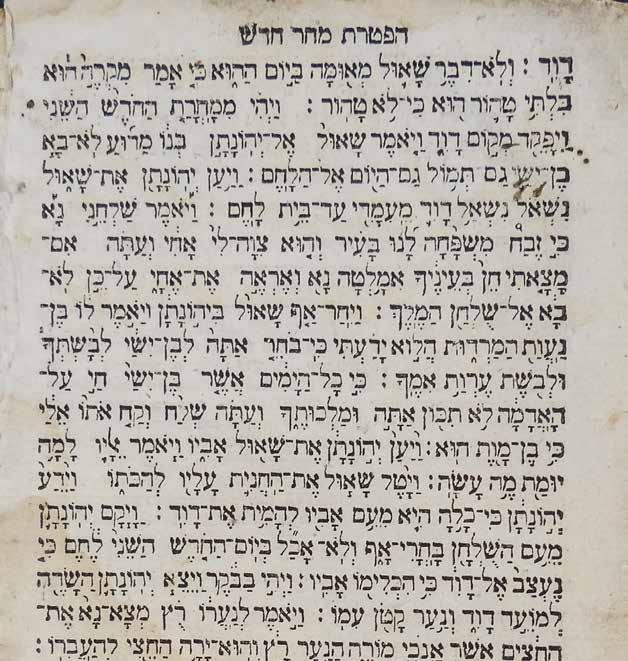 הפטרת מחר חדש
דָּוִֽד : וְלֹֽא־דִבֶּ֥ר שָׁא֛וּל מְא֖וּמָה בַּיּ֣וֹם הַה֑וּא כִּ֤י אָמַר֙ מִקְרֶ֣ה ה֔וּא
בִּלְתִּ֥י טָה֛וֹר ה֖וּא כִּי־לֹ֥א טָהֽוֹר : וַיְהִ֗י מִמָּחֳרַ֤ת הַחֹ֙דֶשׁ֙ הַשֵּׁנִ֔י
וַיִּפָּקֵ֖ד מְק֣וֹם דָּוִ֑ד וַיֹּ֤אמֶר שָׁאוּל֙ אֶל־יְהוֹנָתָ֣ן בְּנ֔וֹ מַדּ֜וּעַ לֹא־בָ֧א
בֶן־יִשַׁ֛י גַּם־תְּמ֥וֹל גַּם־הַיּ֖וֹם אֶל־הַלָּֽחֶם : וַיַּ֥עַן יְהוֹנָתָ֖ן אֶת־שָׁא֑וּל
נִשְׁאֹ֨ל נִשְׁאַ֥ל דָּוִ֛ד מֵעִמָּדִ֖י עַד־בֵּ֥ית לָֽחֶם : וַיֹּ֡אמֶר שַׁלְּחֵ֣נִי נָ֡א
כִּ֣י זֶבַח֩ מִשְׁפָּחָ֨ה לָ֜נוּ בָּעִ֗יר וְה֤וּא צִוָּה־לִי֙ אָחִ֔י וְעַתָּ֗ה אִם־
מָצָ֤אתִי חֵן֙ בְּעֵינֶ֔יךָ אִמָּ֥לְטָה נָּ֖א וְאֶרְאֶ֣ה אֶת־אֶחָ֑י עַל־כֵּ֣ן לֹא־
בָ֔א אֶל־שֻׁלְחַ֖ן הַמֶּֽלֶךְ : וַיִּֽחַר־אַ֤ף שָׁאוּל֙ בִּיה֣וֹנָתָ֔ן וַיֹּ֣אמֶר ל֔וֹ בֶּן־
נַעֲוַ֖ת הַמַּרְדּ֑וּת הֲל֣וֹא יָדַ֗עְתִּי כִּֽי־בֹחֵ֤ר אַתָּה֙ לְבֶן־יִשַׁ֔י לְבָ֨שְׁתְּךָ֔
וּלְבֹ֖שֶׁת עֶרְוַ֥ת אִמֶּֽךָ : כִּ֣י כָל־הַיָּמִ֗ים אֲשֶׁ֤ר בֶּן־יִשַׁי֙ חַ֣י עַל־
הָאֲדָמָ֔ה לֹ֥א תִכּ֖וֹן אַתָּ֣ה וּמַלְכוּתֶ֑ךָ וְעַתָּ֗ה שְׁלַ֨ח וְקַ֤ח אֹתוֹ֙ אֵלַ֔י
כִּ֥י בֶן־מָ֖וֶת הֽוּא : וַיַּ֙עַן֙ יְה֣וֹנָתָ֔ן אֶת־שָׁא֖וּל אָבִ֑יו וַיֹּ֧אמֶר אֵלָ֛יו לָ֥מָּה
יוּמַ֖ת מֶ֥ה עָשָֽׂה : וַיָּ֨טֶל שָׁא֧וּל אֶֽת־הַחֲנִ֛ית עָלָ֖יו לְהַכֹּת֑וֹ וַיֵּ֙דַע֙
יְה֣וֹנָתָ֔ן כִּי־כָ֥לָה הִ֛יא מֵעִ֥ם אָבִ֖יו לְהָמִ֥ית אֶת־דָּוִֽד : וַיָּ֧קָם יְהוֹנָתָ֛ן
מֵעִ֥ם הַשֻּׁלְחָ֖ן בָּחֳרִי־אָ֑ף וְלֹא־אָכַ֞ל בְּיוֹם־הַחֹ֤דֶשׁ הַשֵּׁנִי֙ לֶ֔חֶם כִּ֤י
נֶעְצַב֙ אֶל־דָּוִ֔ד כִּ֥י הִכְלִמ֖וֹ אָבִֽיו : וַיְהִ֣י בַבֹּ֔קֶר וַיֵּצֵ֧א יְהוֹנָתָ֛ן הַשָּׂדֶ֖ה
לְמוֹעֵ֣ד דָּוִ֑ד וְנַ֥עַר קָטֹ֖ן עִמּֽוֹ : וַיֹּ֣אמֶר לְנַעֲר֔וֹ רֻ֗ץ מְצָא־נָא֙ אֶת־
הַ֣חִצִּ֔ים אֲשֶׁ֥ר אָנֹכִ֖י מוֹרֶ֑ה הַנַּ֣עַר רָ֔ץ וְהֽוּא־יָרָ֥ה הַחֵ֖צִי לְהַעֲבִרֽוֹ :